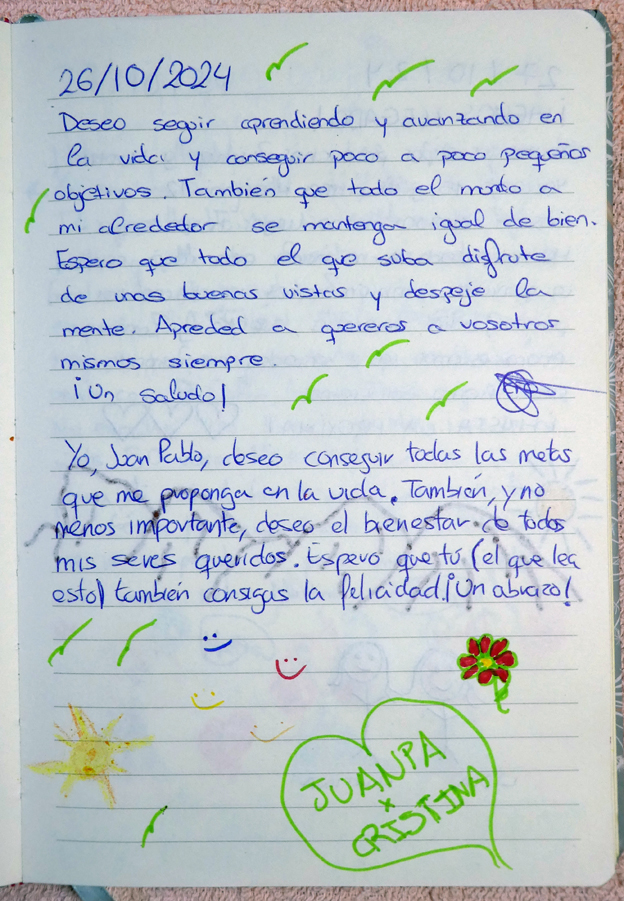 26/10/2024
Deseo seguir aprendiendo y avanzando en
la vida y conseguir poco a poco pequeños
objetivos. También que todo el mundo a
mi alrededor se mantenga igual de bien.
Espero que todo el que suba disfrute
de unas buenas vistas y despeje la
mente. Apreded a quereros a vosotros
mismos siempre.
¡Un saludo!
Yo, Juan Pablo, deseo conseguir todas las metas
que me proponga en la vida. También, y no
menos importante, deseo el bienestar de todos
mis seres queridos. Espero que tú (el que lea
esto) también consigas la felicidad. ¡Un abrazo!
JUANPA
x
CRISTINA